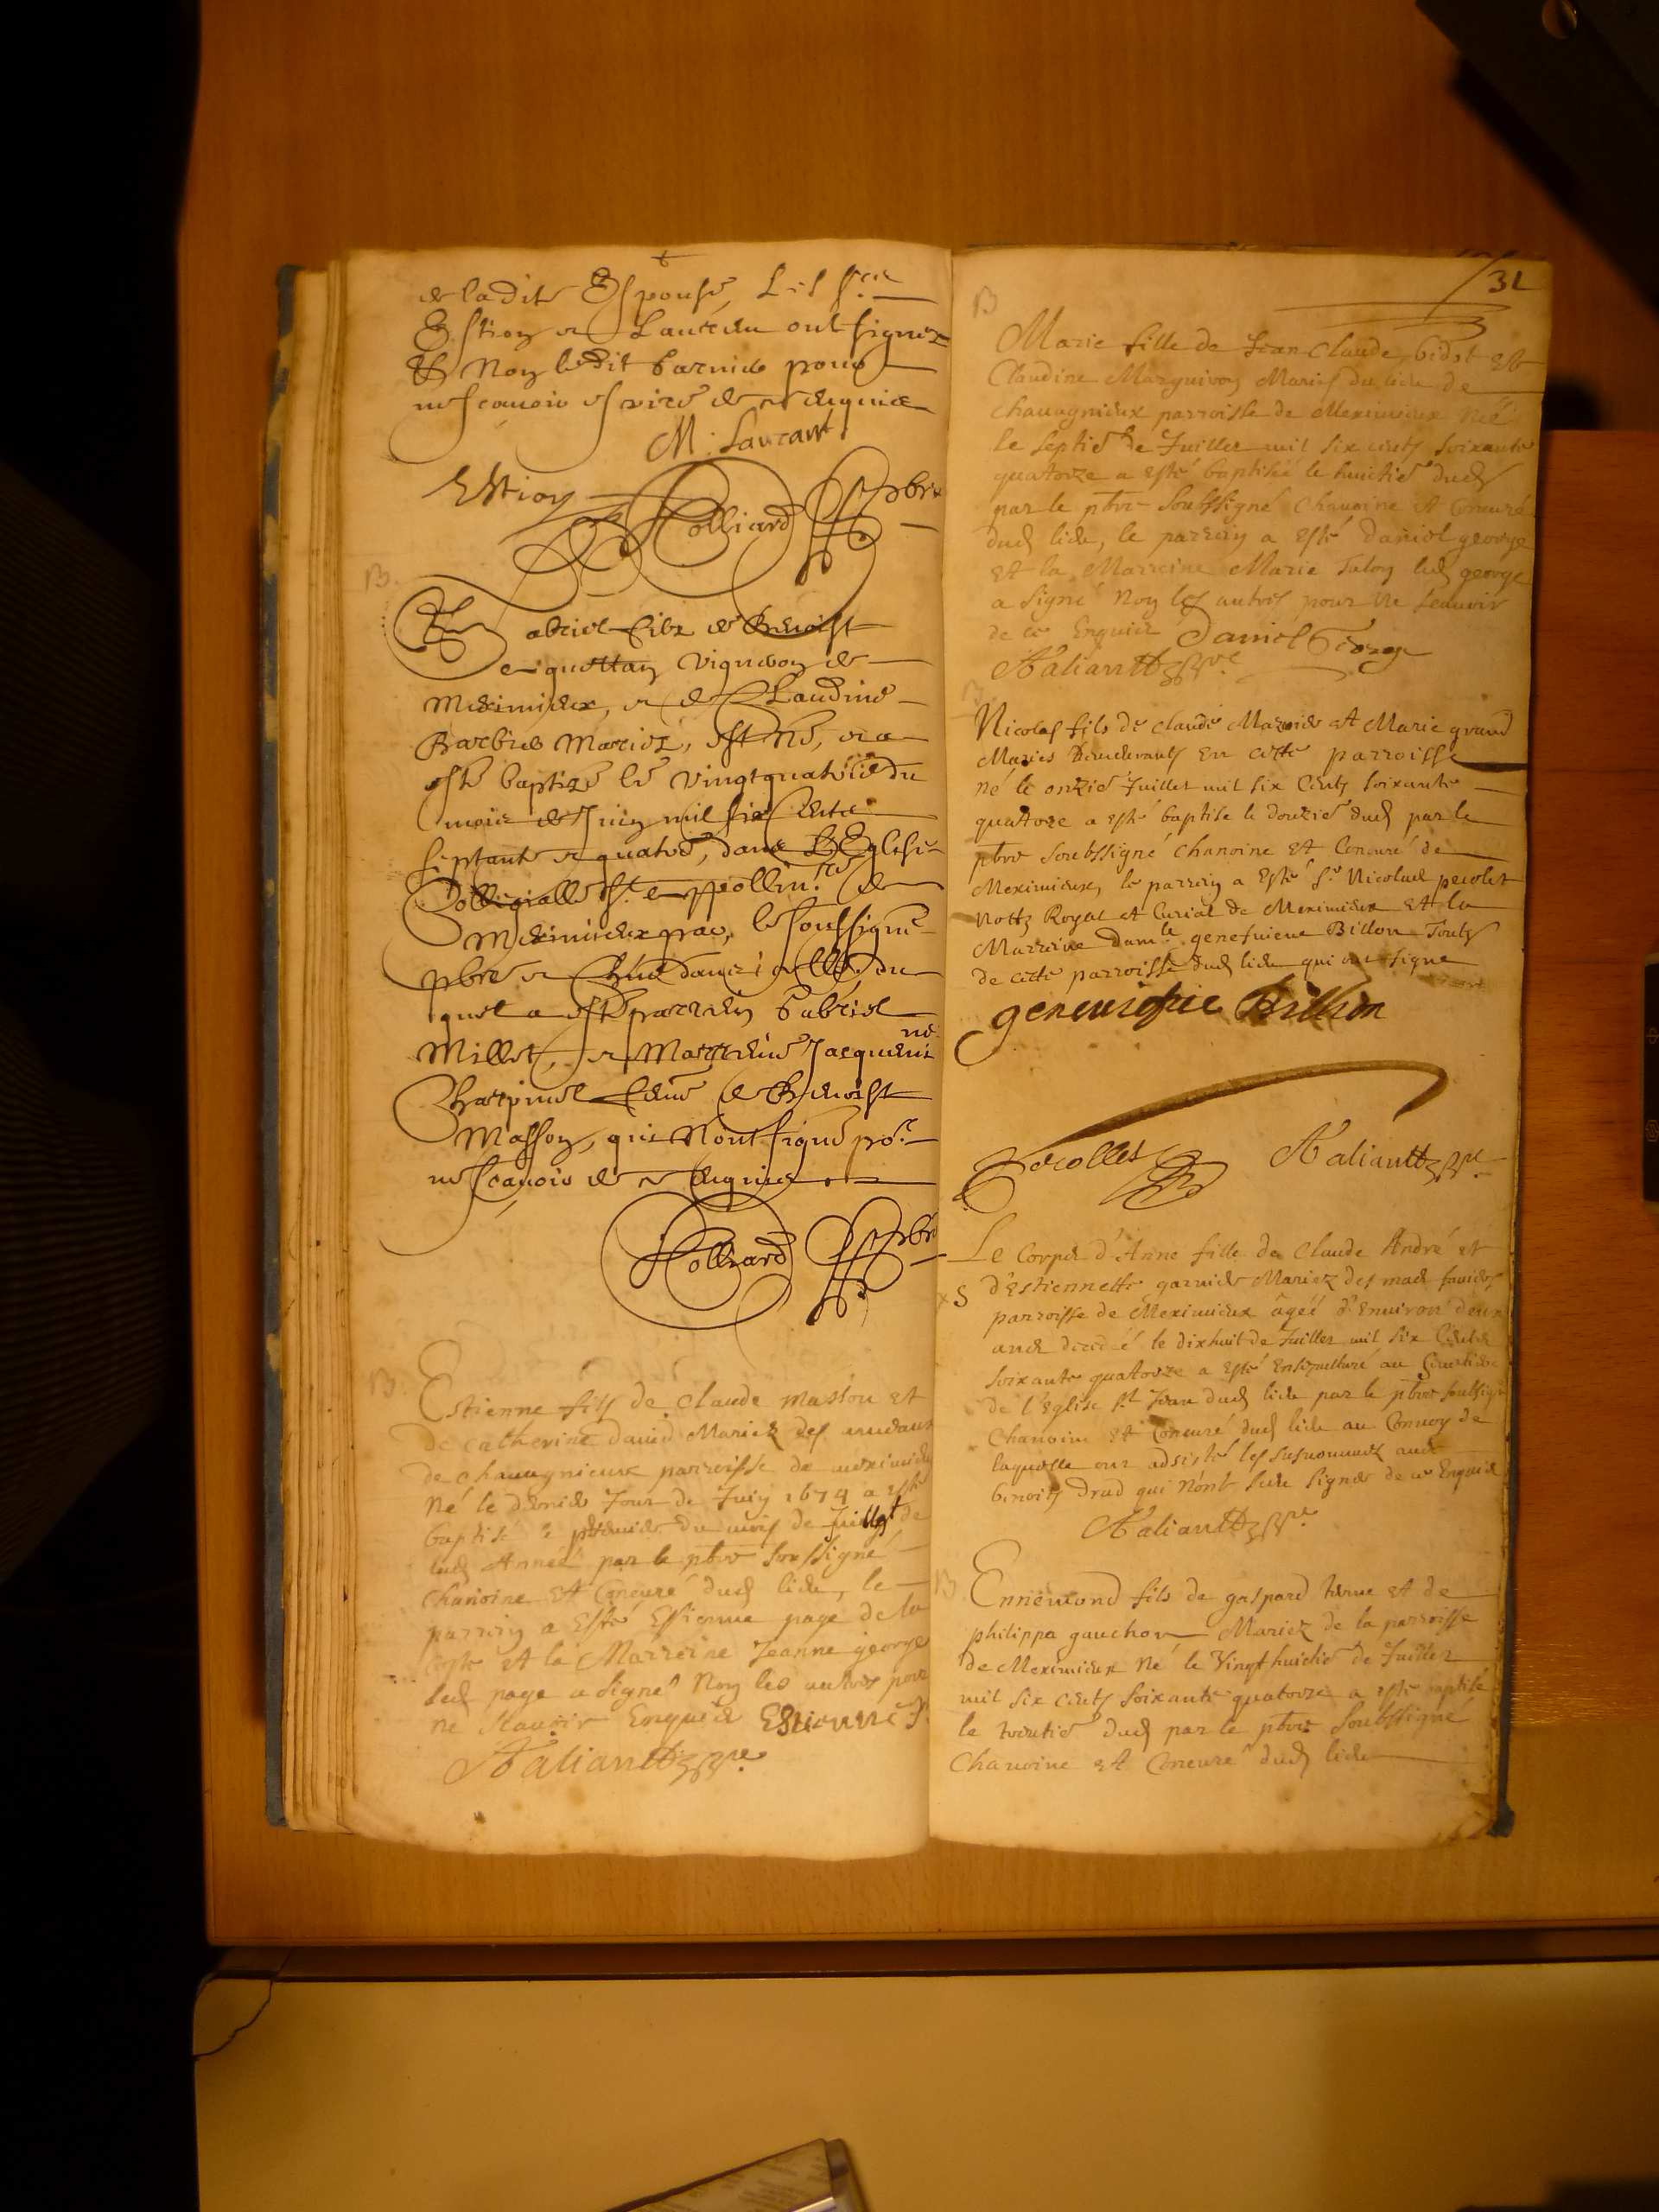 de ladite Espouse, Les srs
Estion et Laurent ont signez
Et Non ledit Garnier pour
ne scavoir escrire de ce enquis
M. Laurant
Estion Rolliard pbre
B.
Gabriel filz de Benoist
vigneron de
Meximieux, et de Claudine
Barbier Mariez, est né, et a
esté baptizé le vingtquatrie du
mois de Juin mil six Cents
septante et quatre, dans L'Eglise
Collegialle St. Appollin.re de
Meximieux par, le soussigné
pbre et Curé dans icelle, du
quel a esté parrein Gabriel
Millet, et Marreine Jacquemine
Charpinel feme de Benoist
Masson, qui N'ont signé por.
ne scavoir de ce enquis
Rolliard pbre
B
Estienne fils de Claude Masson et
de Catherine David Mariez des
de chavagnieux parroisse de meximieux
Né le dernier Jour de Juin 1674 a esté
baptisé le premier du mois de Juillet de
lad Année par le pbre soussigné
Chanoine Et Concuré dud lieu, le
parrein a Esté Estienne page de la
coste et la Marreine Jeanne george
led page a signé Non les autres pour
ne scavoir Enquis Estienne P.
Aaliantt pbre.
31
B
Marie fille de Jean Claude bidot Et
Claudine Marguiron Mariés du lieu de
Chavagnieux parroisse de Meximieux Née
le septie de Juillet mil six cents soixante
quatorze a esté baptisée le huitie dud
par le pbre soubssigné Chanoine et Concuré
dud lieu, le parrein a esté daniel george
et la Marreine Marie Talon led george
a signé Non les autres pour ne scavoir
de ce Enquis Daniel George
Aaliantt pbre.
B
Nicolas fils de claude Marnier et Marie grand
Mariés demeurants en cette parroisse
né le onzie Juillet mil six Cents soixante
quatorze a esté baptisé le douzie dud par le
pbre soubssigné chanoine et Concuré de
Meximieux, le parrein a Esté sr Nicolas pecolet
Nottz Royal et Curial de Meximieux et la
Marreine damlle genefvieve Billon Touts
de cette parroisse dud lieu qui ont signé
geneviefve Billion
Pecollet Aaliantt pbre
Le Corps d'Anne fille de Claude André et
S d'Estiennette garnier Mariez des
parroisse de Meximieux agée d'Environ deux
ans decedé le dixhuit de Juillet mil six Cents
soixante quatorze a esté Ensepulturé au Cimetiere
de l'Eglise St Jean dud lieu par le pbre soubsigné
Chanoine et Concuré dud lieu au Convoy de
laquelle ont adsisté les susnommés avec
benoit drud qui n'ont sceu signer de ce Enquis
Aaliantt pbre.
B
Ennemond fils de gaspard terme et de
philippa gauchon Mariez de la parroisse
de Meximieux Né le Vingthuictie de Juillet
mil six cents soixante quatorze a esté baptisé
le trentie dud par le pbre soubssigné
Chanoine et Concuré dud lieu